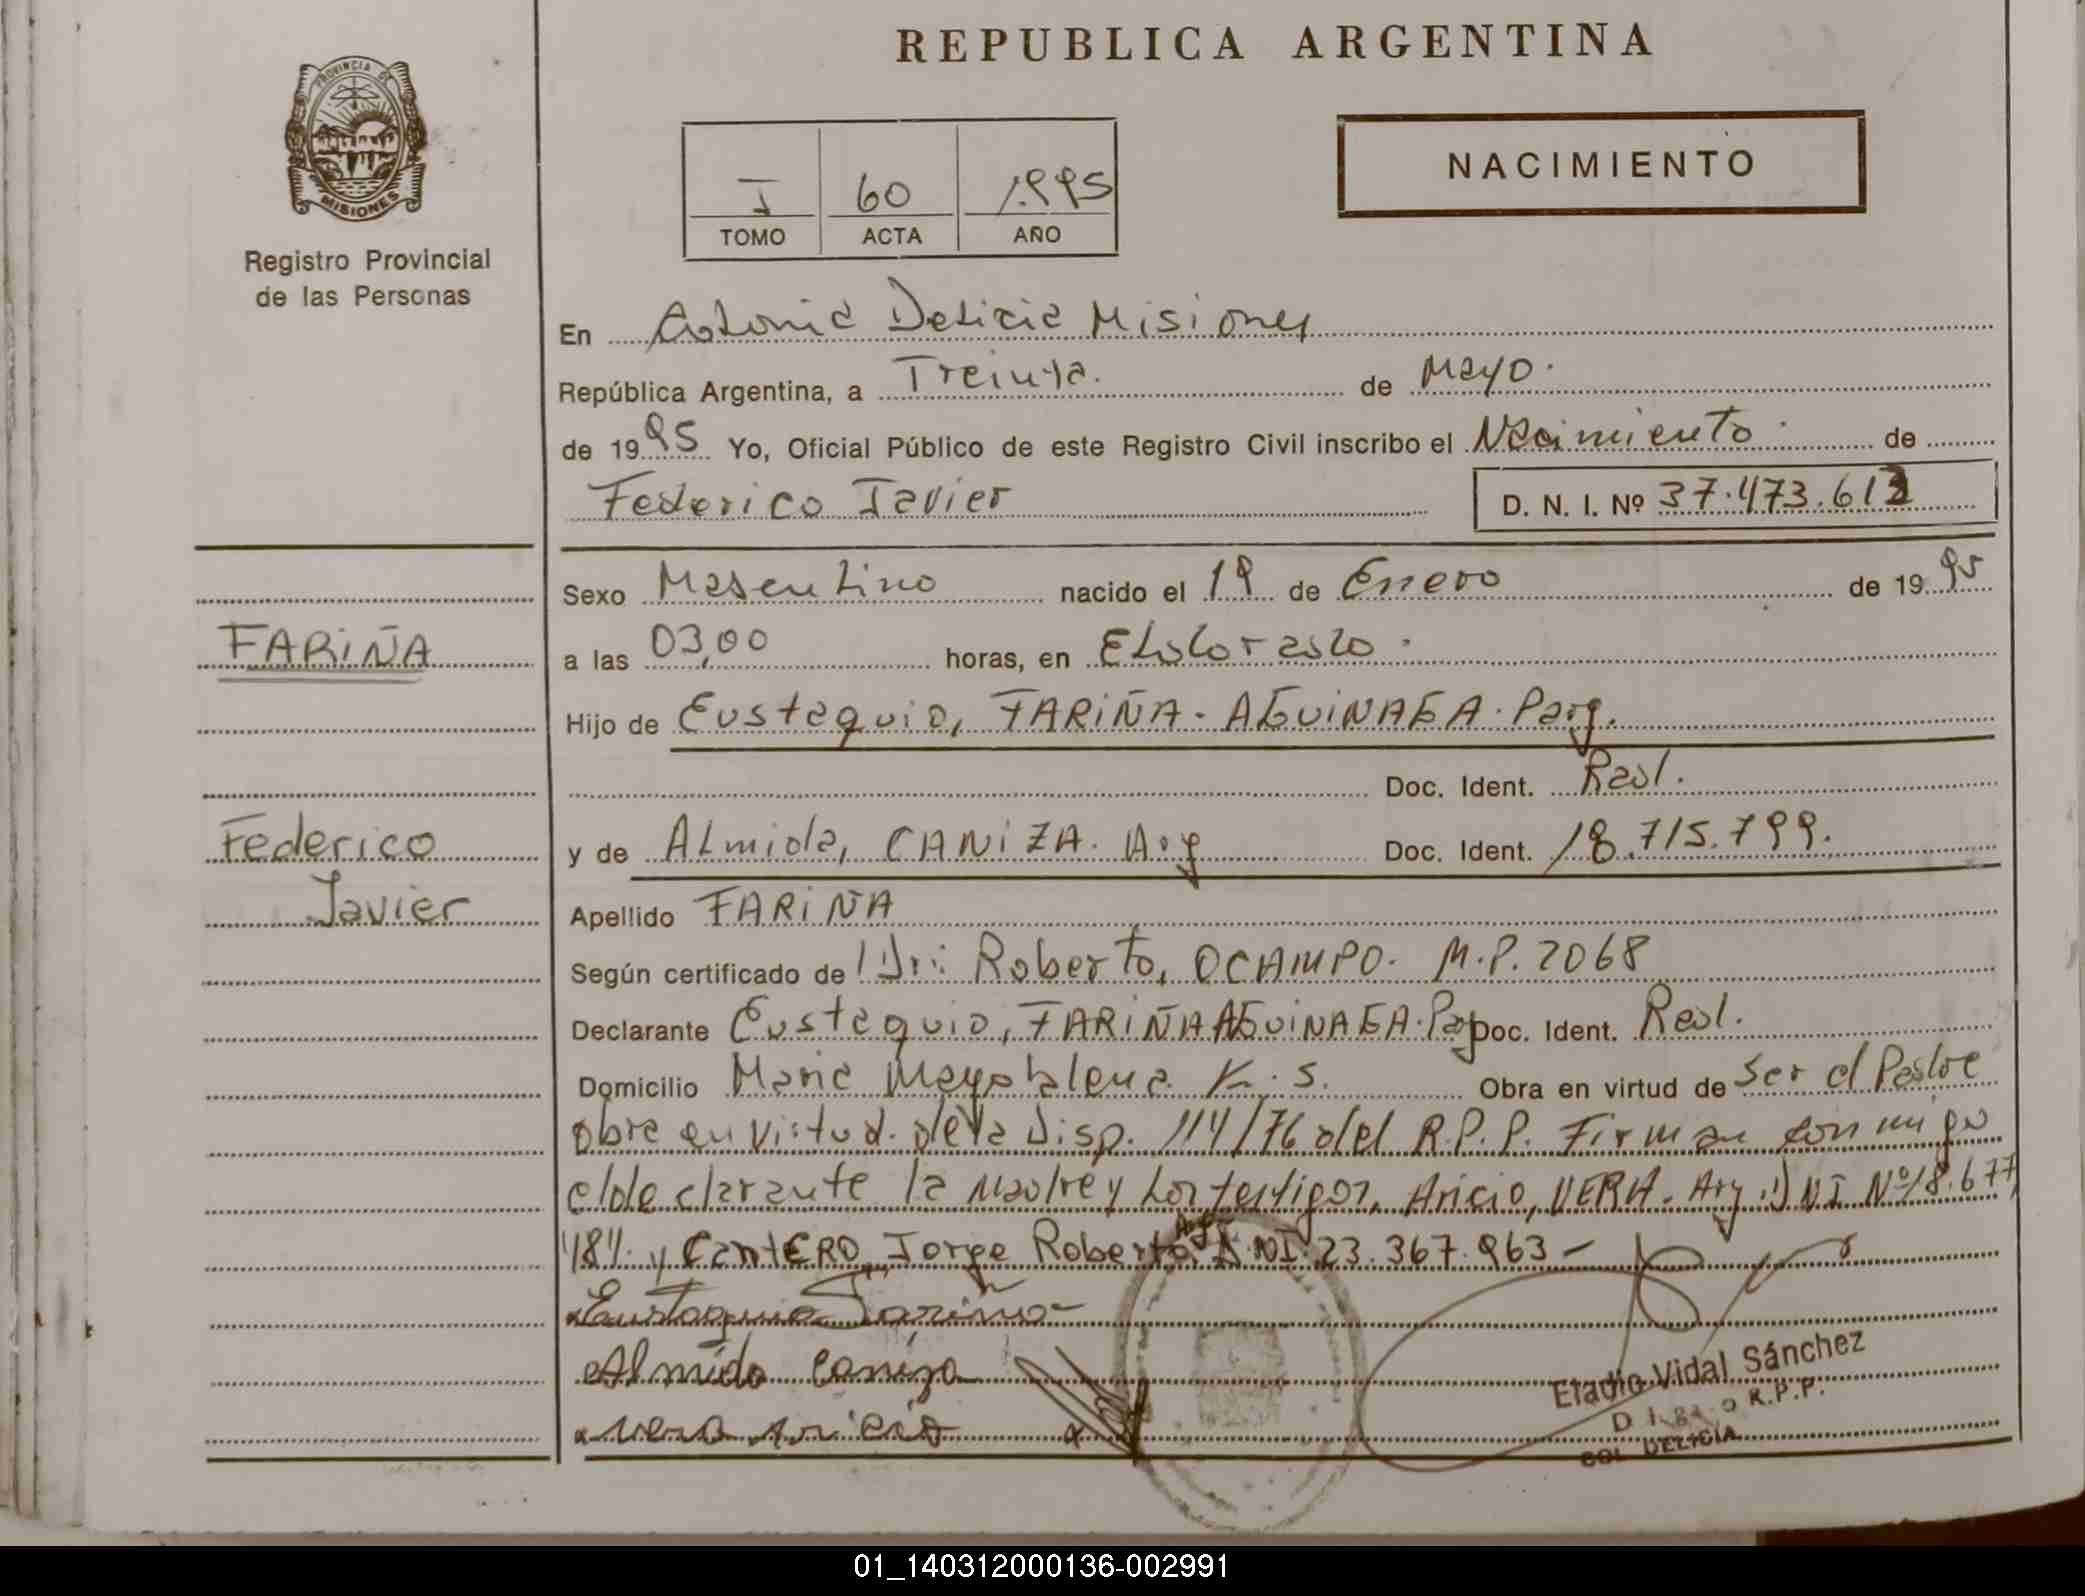 REPUBLICA ARGENTINA
PROVINCIA DE
MISIONES
Registro Provincial
de las Personas
NACIMIENTO
I 60 1.995
TOMO ACTA AÑO
En Colonia Delicia Misiones
República Argentina, a Treinta. de Mayo.
de 1995 Yo, Oficial Público de este Registro Civil inscribo el Nacimiento de
Federico Javier D. N. I. Nº 37.473.613
Sexo Masculino nacido el 19 de Enero de 1995
FARIÑA
a las 03,00 horas, en Eldorado.
Hijo de Eustaquio, FARIÑA-AGUINAGA. Parg.
Doc. Ident. Radl.
Federico
y de Almida, CANIZA. Arg Doc. Ident. 18.715.799.
Javier
Apellido FARIÑA
Según certificado de Dr: Roberto, OCAMPO. M.P. 2068
Declarante Eustaquio, FARIÑA AGUINAGA. Doc. Ident. Radl.
Domicilio Maria Magdalena K. S. Obra en virtud de Ser el Padre
obra en virtud. de la Disp. 114/76 del R.P.P. Firman conmigo
el declarante la madre y los testigos, Aricio, VERA. Arg. DNI Nº 18.677
484. y CantERO, Jorge Roberto, Arg DNI: 23.367.963-
Eustaquio Fariña
Almida Caniza
Vera Aricio
Eladio Vidal Sánchez
R.P.P.
COL DELICIA
01_140312000136-002991